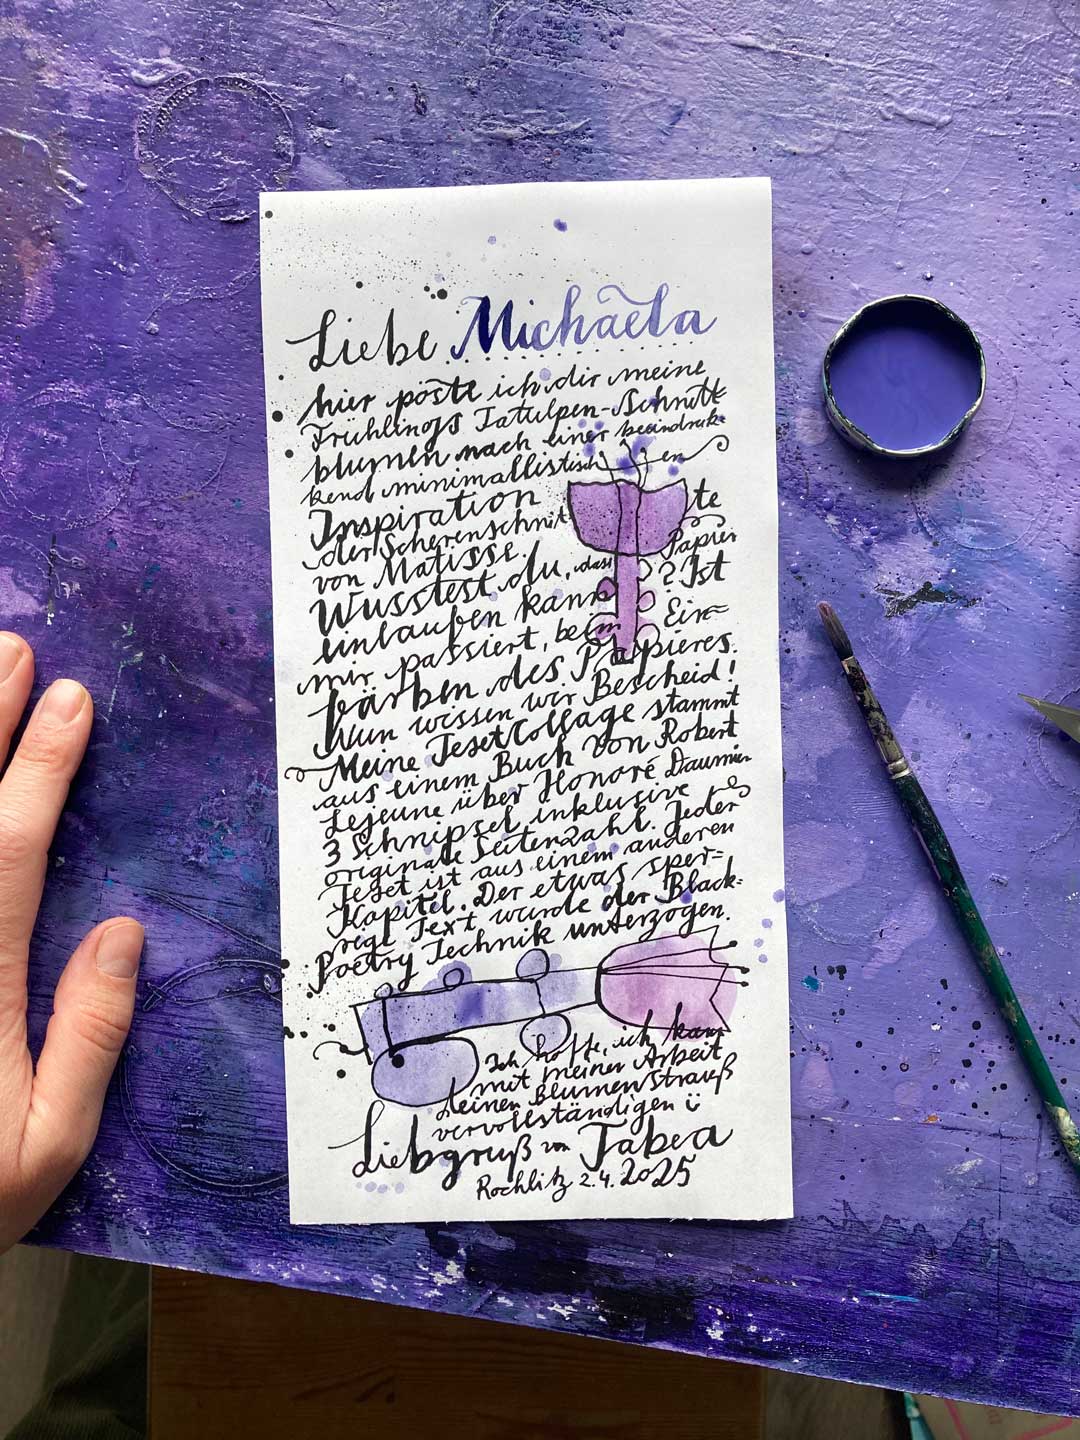 Liebe Michaela
hier poste ich dir meine
Frühlings Tatulpen-Schnitt
blumen nach einer beeindruk-
kend minimallistisch en
Inspiration te
der Scherenschnit Papier
von Matisse.
Wusstest du, dass ? Ist
einlaufen kann
mir passiert, beim Ein=
färben des Papieres.
Nun wissen wir Bescheid!
Meine Jesetcollage stammt
aus einem Buch von Robert
Lejeune über Honoré Daumier
3 Schnipsel inklusive
originale Seitenzahl. Jeder
Jeset ist aus einem anderen
Kapitel. Der etwas sper=
rige Text wurde der Black=
Poetry Technik unterzogen.
Ich hoffe, ich kann
mit meiner Arbeit
deinen Blumenstrauß
vervollständigen ü
Liebgruß von Tabea
Rochlitz 2.4.2025